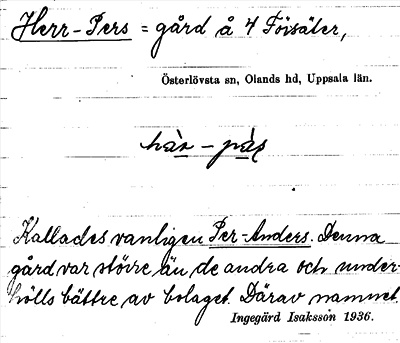 Herr-Pers = gård å 4 Försäter,
Österlövsta sn, Olands hd, Uppsala län.
hàs – pàs
Kallades vanligen Per-Anders. Denna
gård var större än de andra och under-
hölls bättre av bolaget. Därav namnet.
Ingegärd Isaksson 1936.